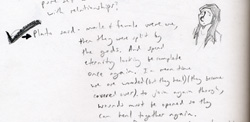 with relationships?
Plato said - male & female were one,
then they were split by
the gods, and spend
eternity looking to be complete
once again. In mean time
we are wounded (but they heal) they become
covered over to join again though,
wounds must be opened so they
can heal together again.